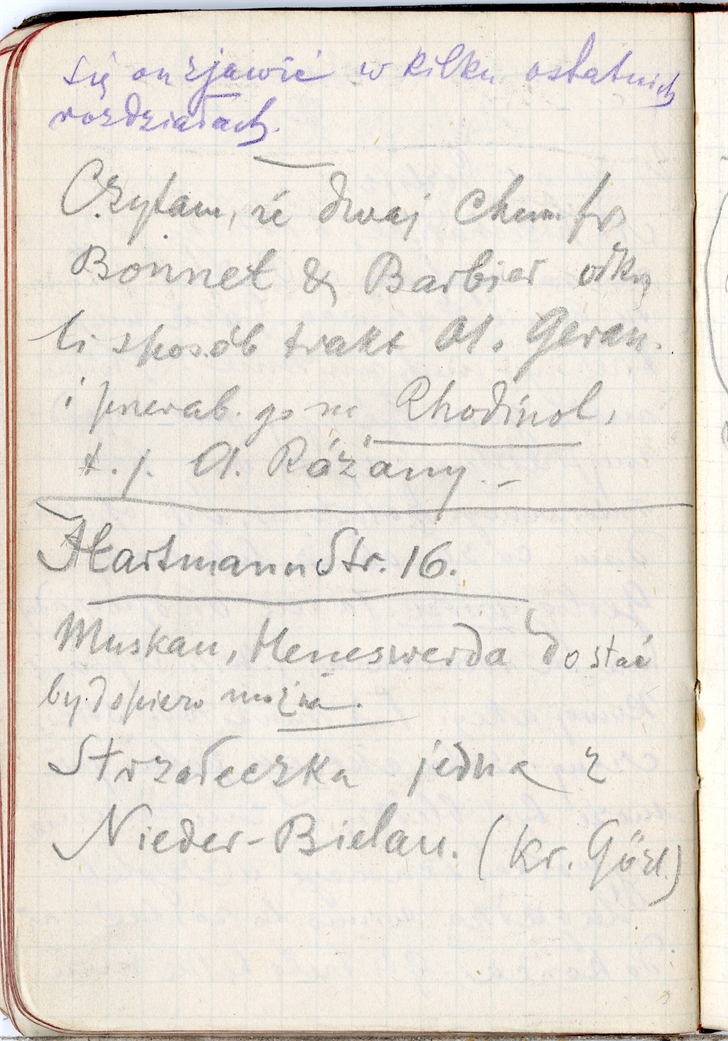 się on zjawić w kilku ostatnich
rozdziałach.
Czytam, że dwaj Chem. fr.
Bonnet & Barbier odkry
li sposób trakt Ol. Geran.
i przerab. go na Rhodinol,
t. j. Ol. Różany. –
Hartmann Str. 16.
Muskau, Heneswerda dostać
by dopiero można.
Strzałeczka jedna z
Nieder-Bielau. (Kr. Görl.)